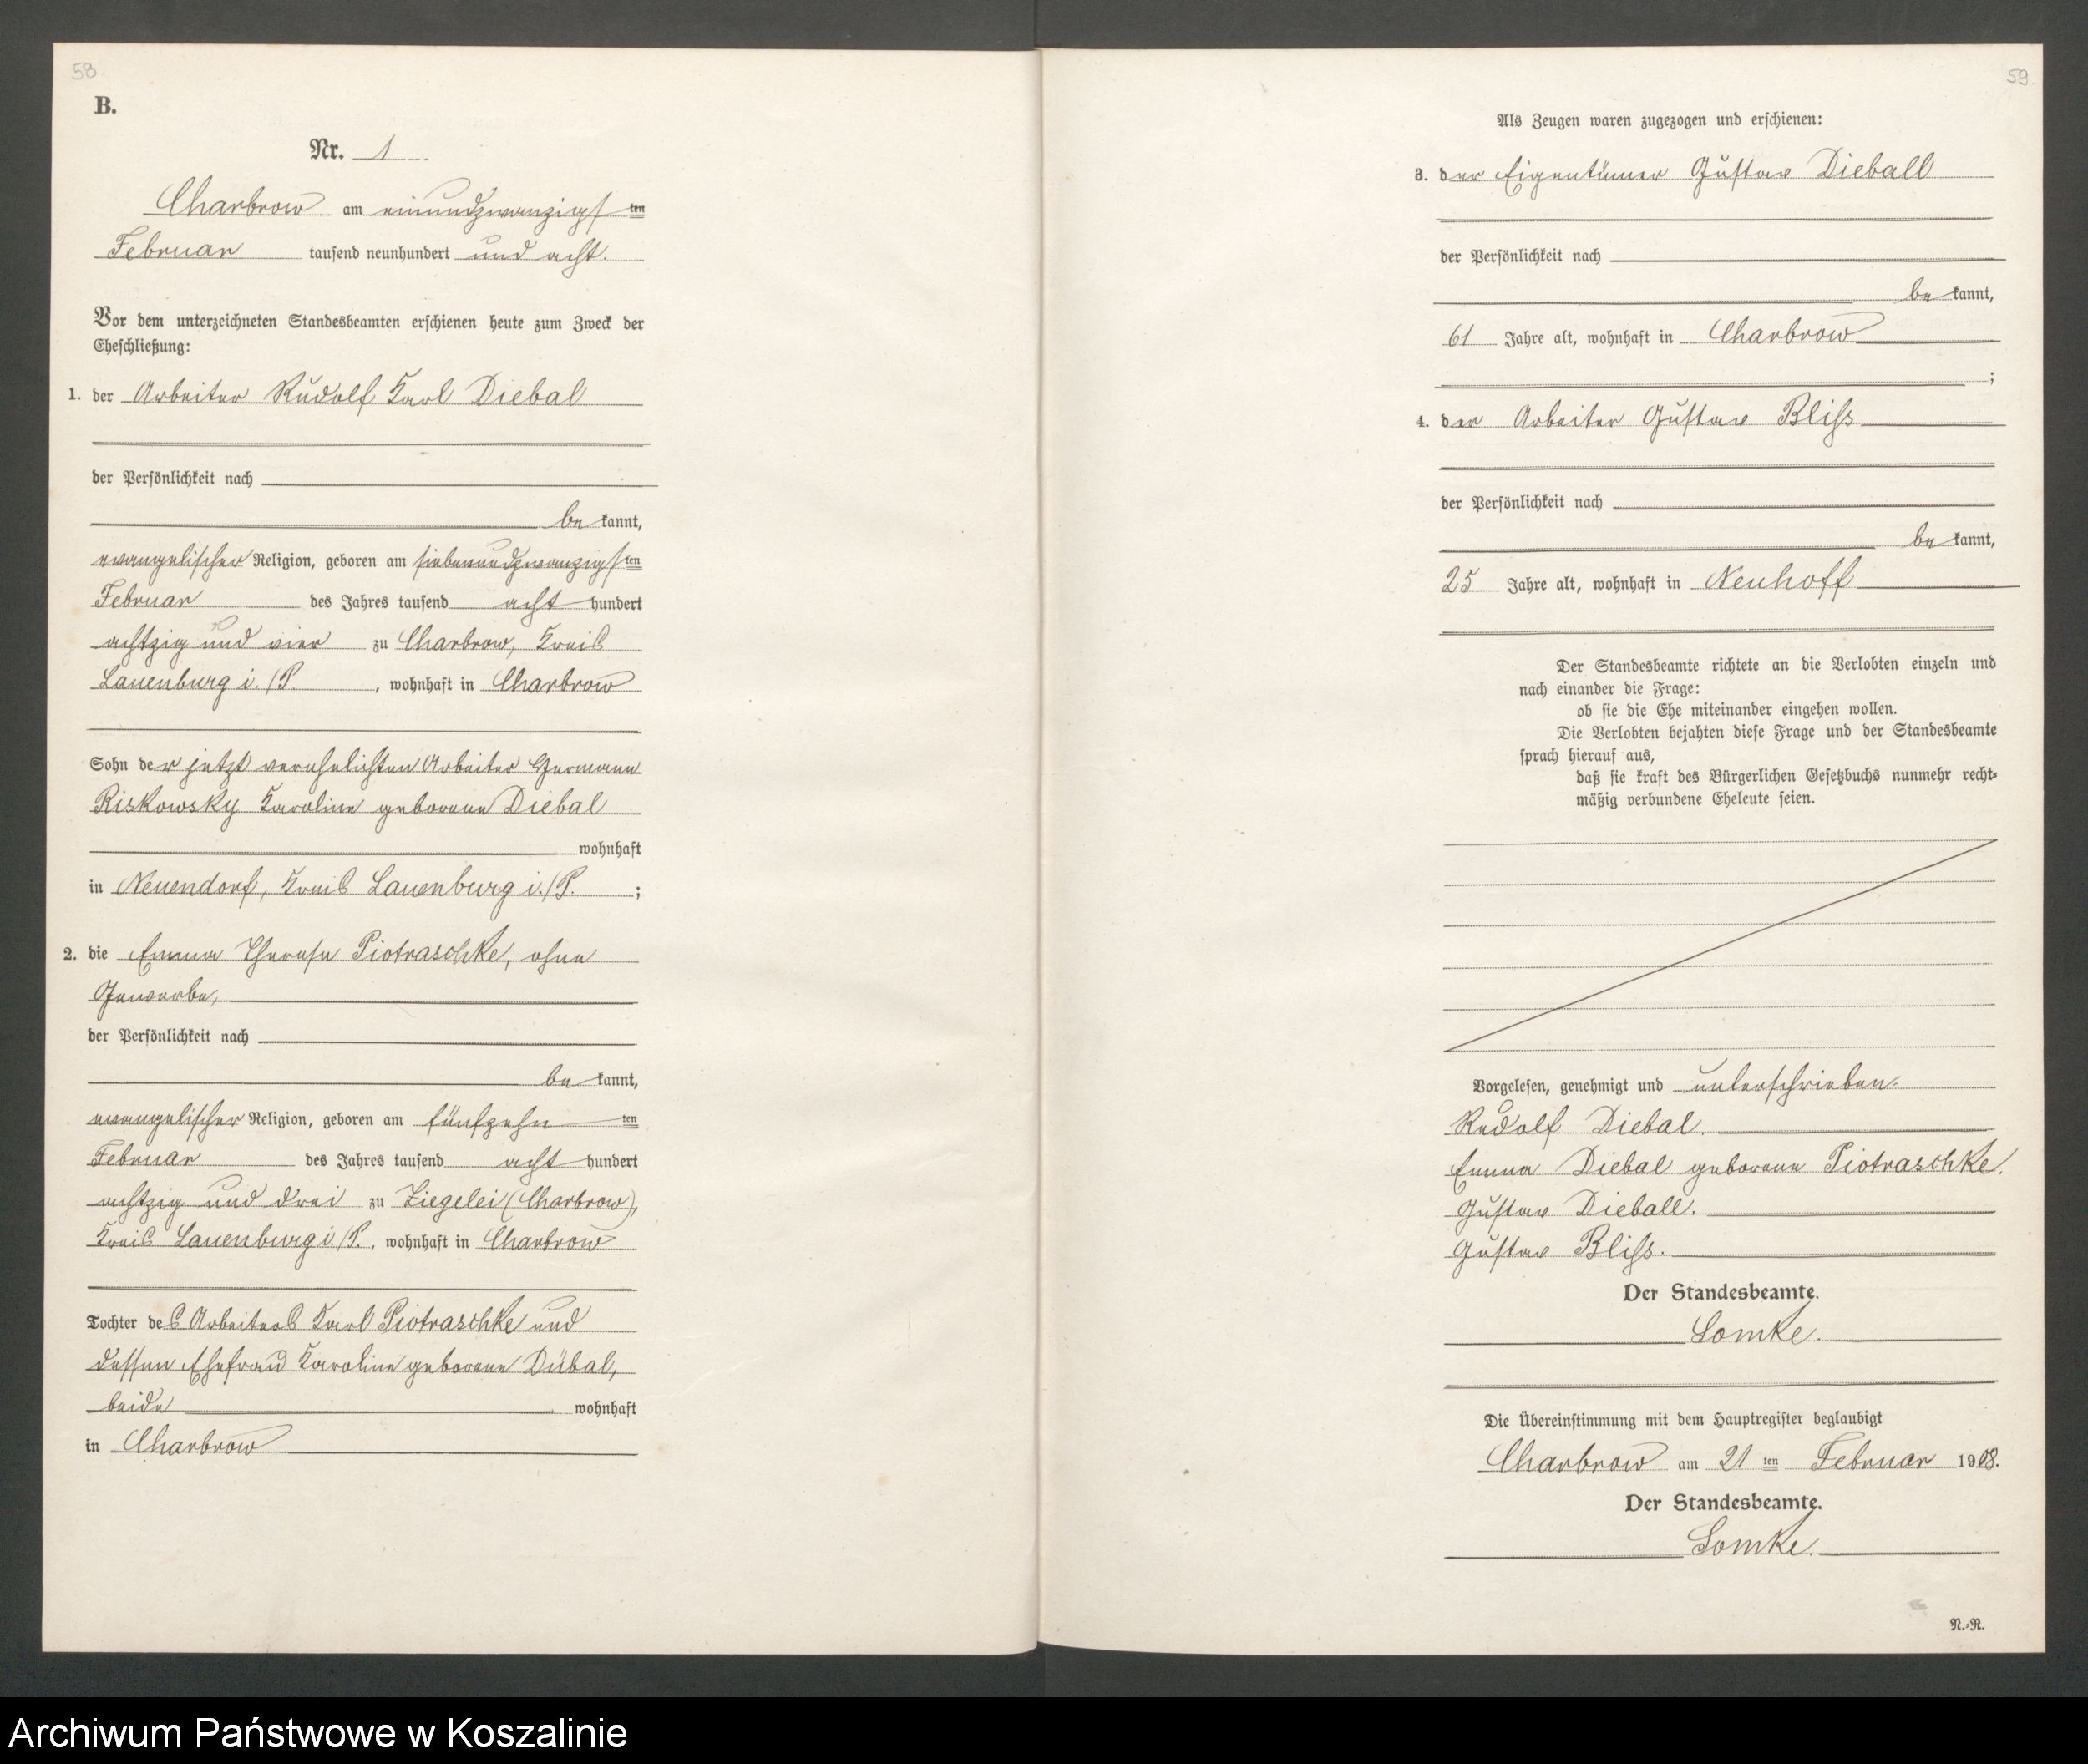 58.
B.
Nr. 1
Charbrow am einundzwanzigsten
Februar tausend neunhundert und acht.
Vor dem unterzeichneten Standesbeamten erschienen heute zum Zweck der
Eheschließung:
1. der Arbeiter Rudolf Karl Diebal
der Persönlichkeit nach
be kannt,
evangelischer Religion, geboren am siebenundzwanzigsten
Februar des Jahres tausend acht hundert
achtzig und vier zu Charbrow, Kreis
Lauenburg i./P. , wohnhaft in Charbrow
Sohn der jetzt verehelichten Arbeiter Hermann
Riskowsky Karoline geborene Diebal
wohnhaft
in Neuendorf, Kreis Lauenburg i./P. ;
2. die Emma Therese Piotraschke, ohne
Gewerbe,
der Persönlichkeit nach
be kannt,
evangelischer Religion, geboren am fünfzehn ten
Februar des Jahres tausend acht hundert
achtzig und drei zu Ziegelei (Charbrow),
Kreis Lauenburg i/P. , wohnhaft in Charbrow
Tochter des Arbeiters Karl Piotraschke und
dessen Ehefrau Karoline geborene Dübal,
beide wohnhaft
in Charbrow
59.
Als Zeugen waren zugezogen und erschienen:
3. der Eigentümer Gustav Dieball
der Persönlichkeit nach
be kannt,
61 Jahre alt, wohnhaft in Charbrow
;
4. der Arbeiter Gustav Bliss
der Persönlichkeit nach
be kannt,
25 Jahre alt, wohnhaft in Neuhoff
Der Standesbeamte richtete an die Verlobten einzeln und
nach einander die Frage:
ob sie die Ehe miteinander eingehen wollen.
Die Verlobten bejahten diese Frage und der Standesbeamte
sprach hierauf aus,
daß sie kraft des Bürgerlichen Gesetzbuchs nunmehr recht-
mäßig verbundene Eheleute seien.
Vorgelesen, genehmigt und unterschrieben.
Rudolf Diebal.
Emma Diebal geborene Piotraschke.
Gustav Dieball.
Gustav Bliss.
Der Standesbeamte.
Lomke.
Die Übereinstimmung mit dem Hauptregister beglaubigt
Charbrow am 21 ten Februar 1908.
Der Standesbeamte.
Lomke.
N.-R.
Archiwum Państwowe w Koszalinie